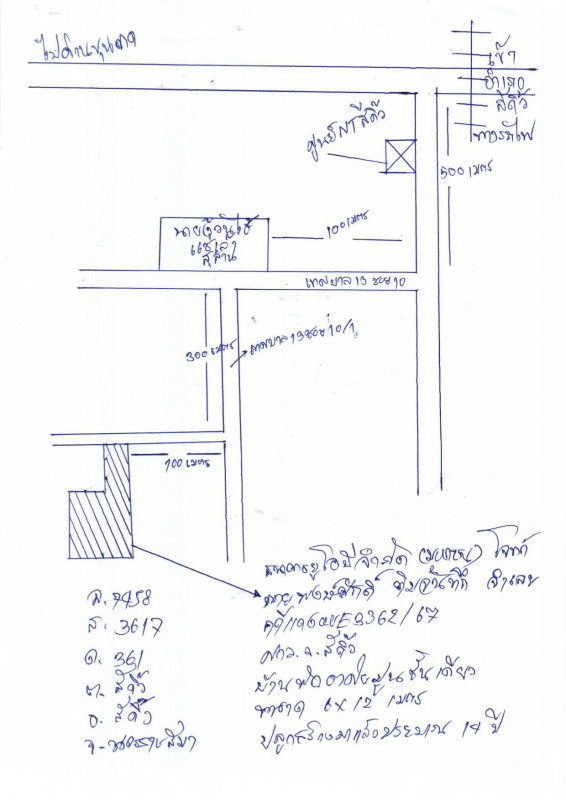 ไปด่านขุนทด
เข้า
อำเภอ
สีคิ้ว
ทางรถไฟ
500 เมตร
100 เมตร
สุสาน
เทศบาล 19 ซอย 10
300 เมตร
เทศบาล 19 ซอย 10/1
100 เมตร
ธนาคารยูโอบีจำกัด (มหาชน) โจทก์
จำเลย
ผบE9362/67
จ. สีคิ้ว
บ้านพักอาศัยตึกชั้นเดียว
ขนาด 6x12 เมตร
ปลูกสร้างมาแล้วประมาณ 14 ปี
ล. 7458
ส. 3617
ด. 361
ต. สีคิ้ว
อ. สีคิ้ว
จ. นครราชสีมา